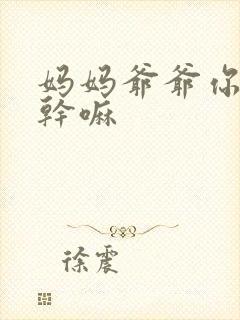 妈妈爷爷你
幹嘛
徐震